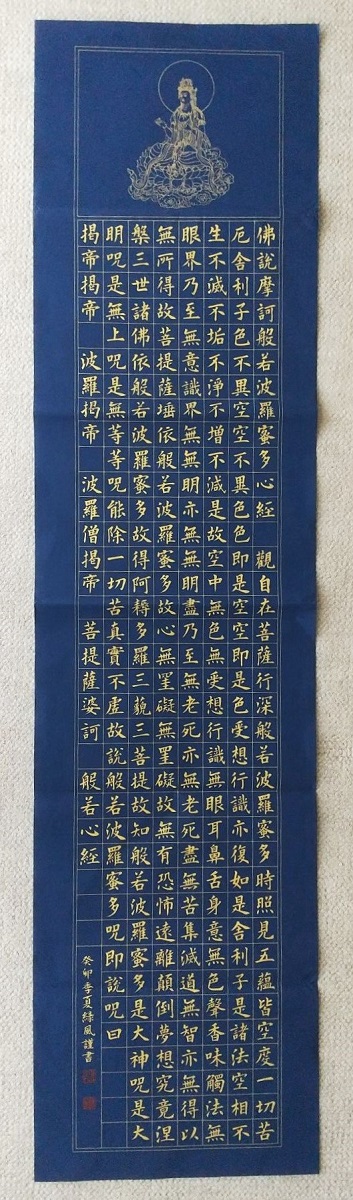 佛說摩訶般若波羅蜜多心經 觀自在菩薩行深般若波羅蜜多時照見五蘊皆空度一切苦
厄舍利子色不異空空不異色色即是空空即是色受想行識亦復如是舍利子是諸法空相不
生不滅不垢不淨不增不減是故空中無色無受想行識無眼耳鼻舌身意無色聲香味觸法無
眼界乃至無意識界無無明亦無無明盡乃至無老死亦無老死盡無苦集滅道無智亦無得以
無所得故菩提薩埵依般若波羅蜜多故心無罣礙無罣礙故無有恐怖遠離顛倒夢想究竟涅
槃三世諸佛依般若波羅蜜多故得阿耨多羅三藐三菩提故知般若波羅蜜多是大神咒是大
明咒是無上咒是無等等咒能除一切苦真實不虛故說般若波羅蜜多咒即說咒曰
揭帝揭帝 波羅揭帝 波羅僧揭帝 菩提薩婆訶 般若心經
癸卯季夏綠風謹書